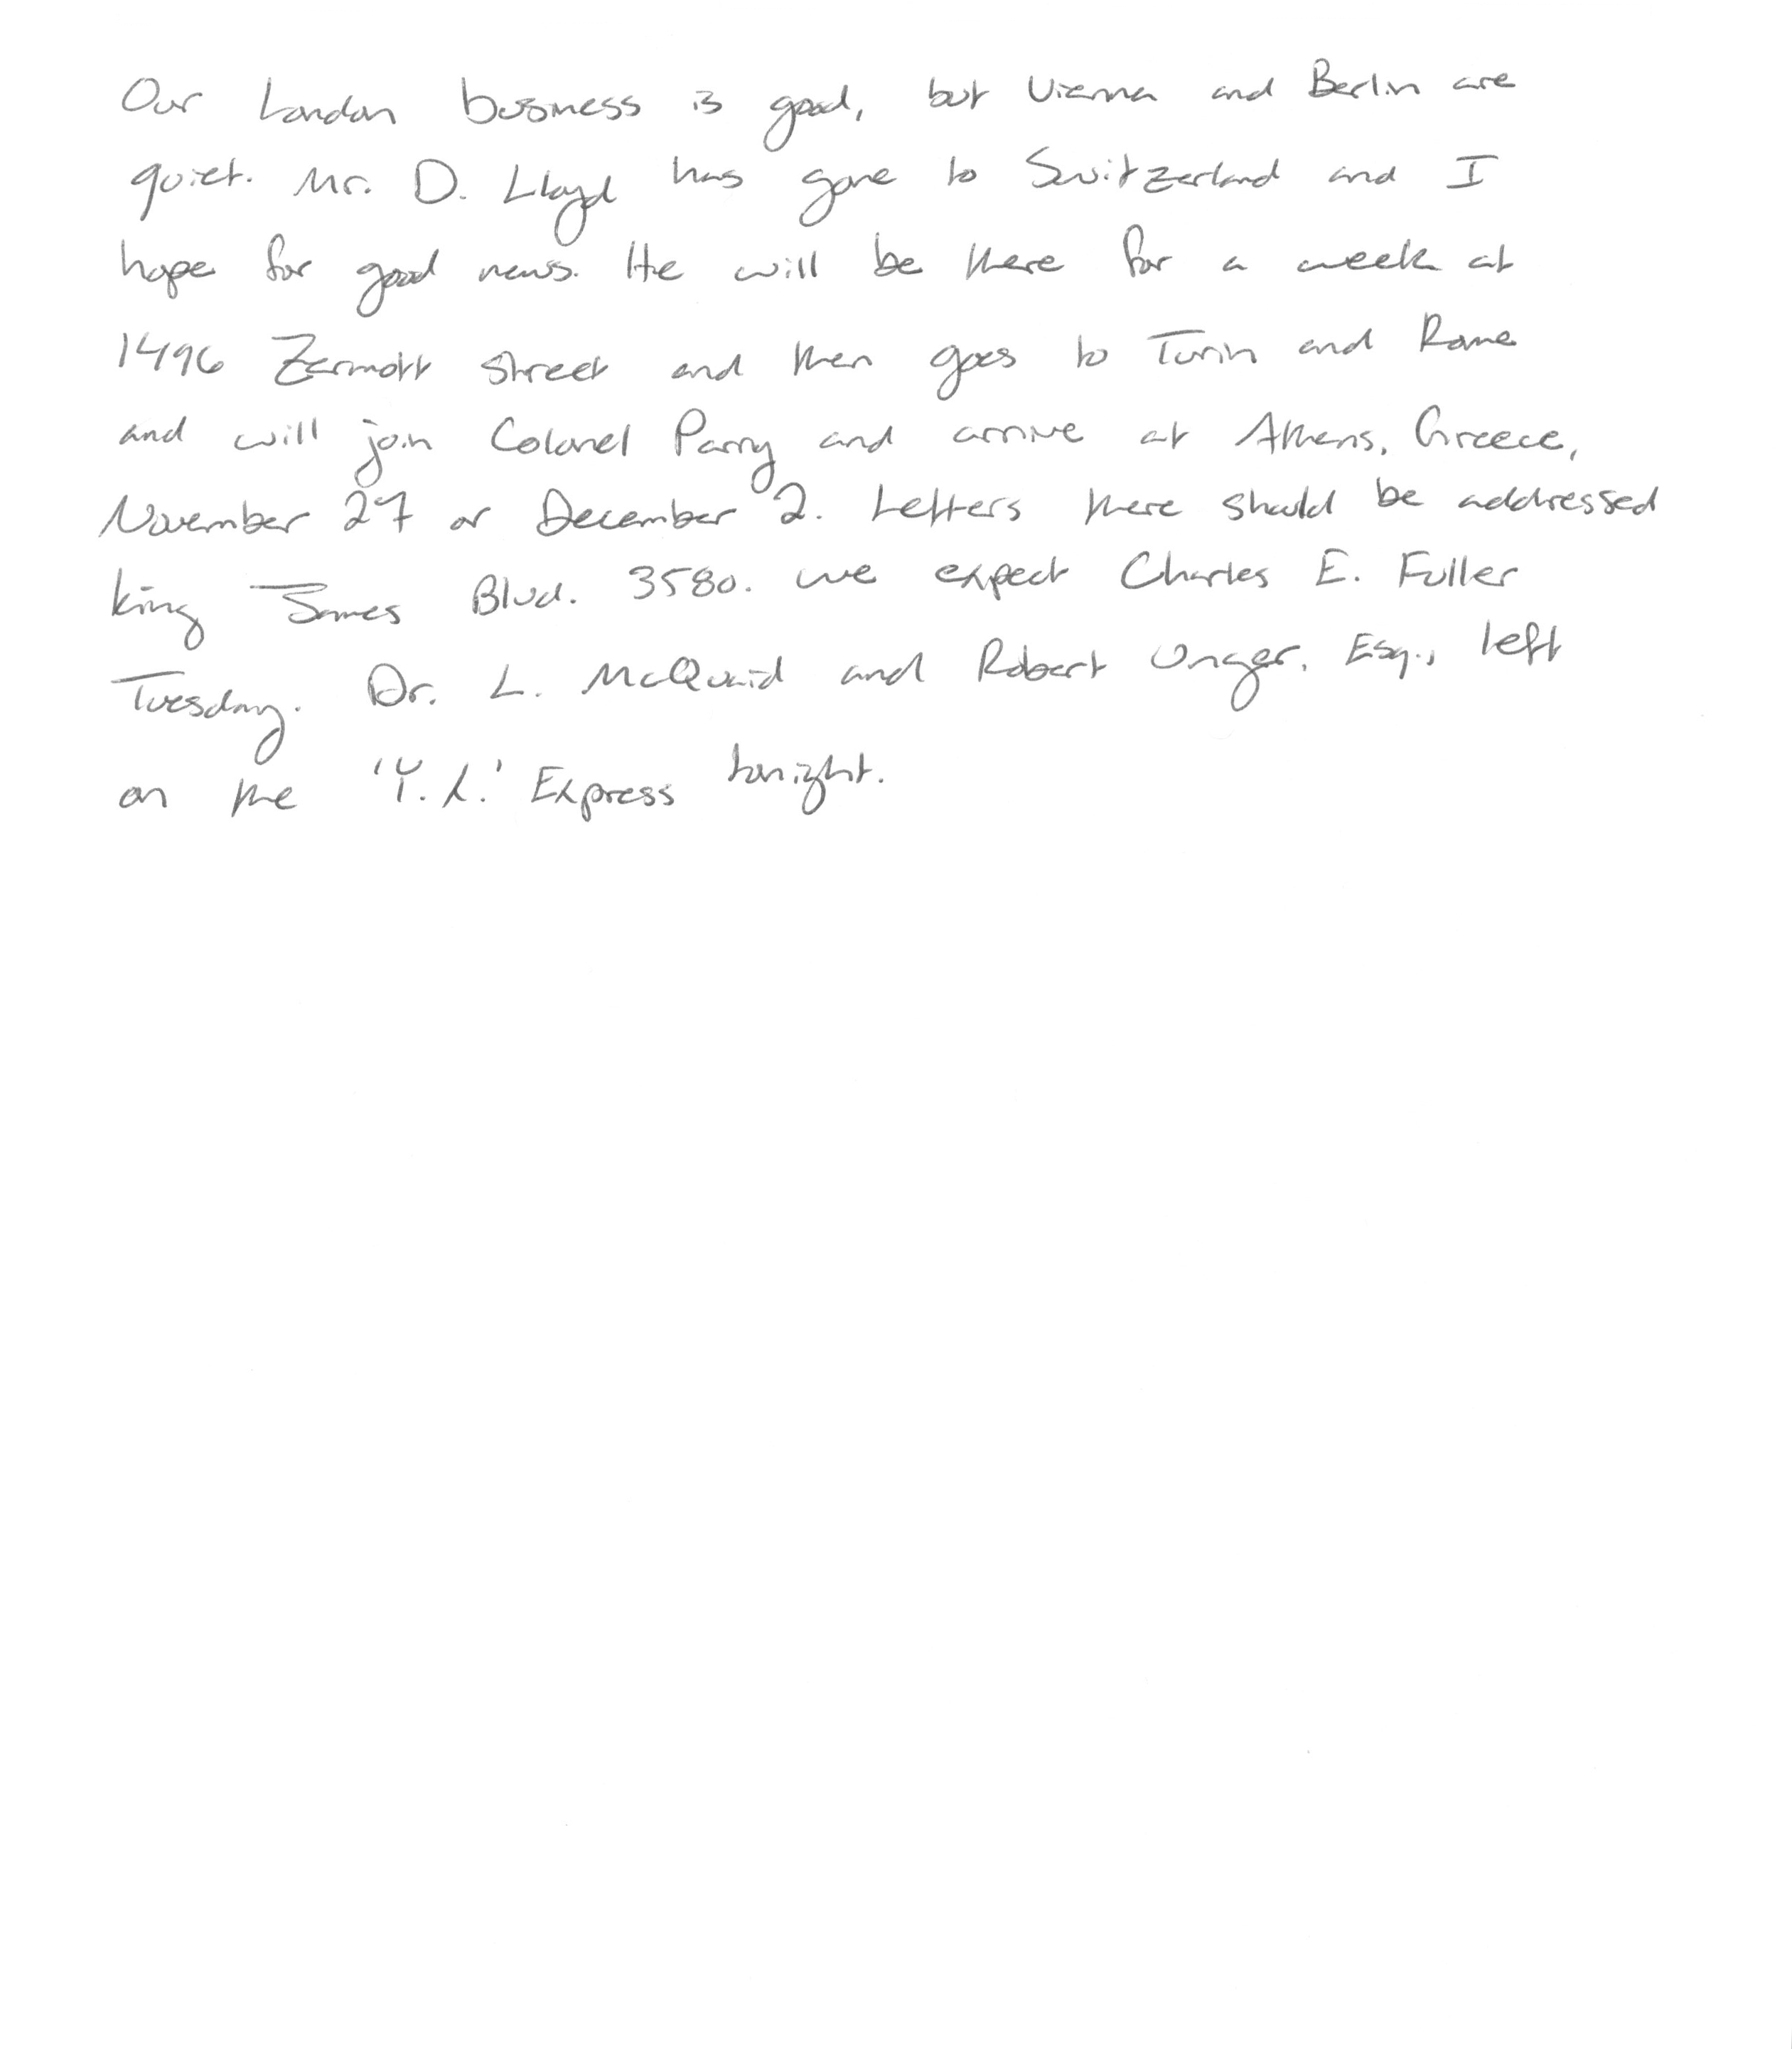 Our London business is good, but Vienna and Berlin are
quiet. Mr. D. Lloyd has gone to Switzerland and I
hope for good news. He will be there for a week at
1496 Zermott Street and then goes to Turin and Rome
and will join Colonel Parry and arrive at Athens, Greece,
November 27 or December 2. Letters there should be addressed
king James Blvd. 3580. we expect Charles E. Fuller
Tuesday. Dr. L. McQuaid and Robert Unger, Esq., left
on the 'Y. X.' Express tonight.